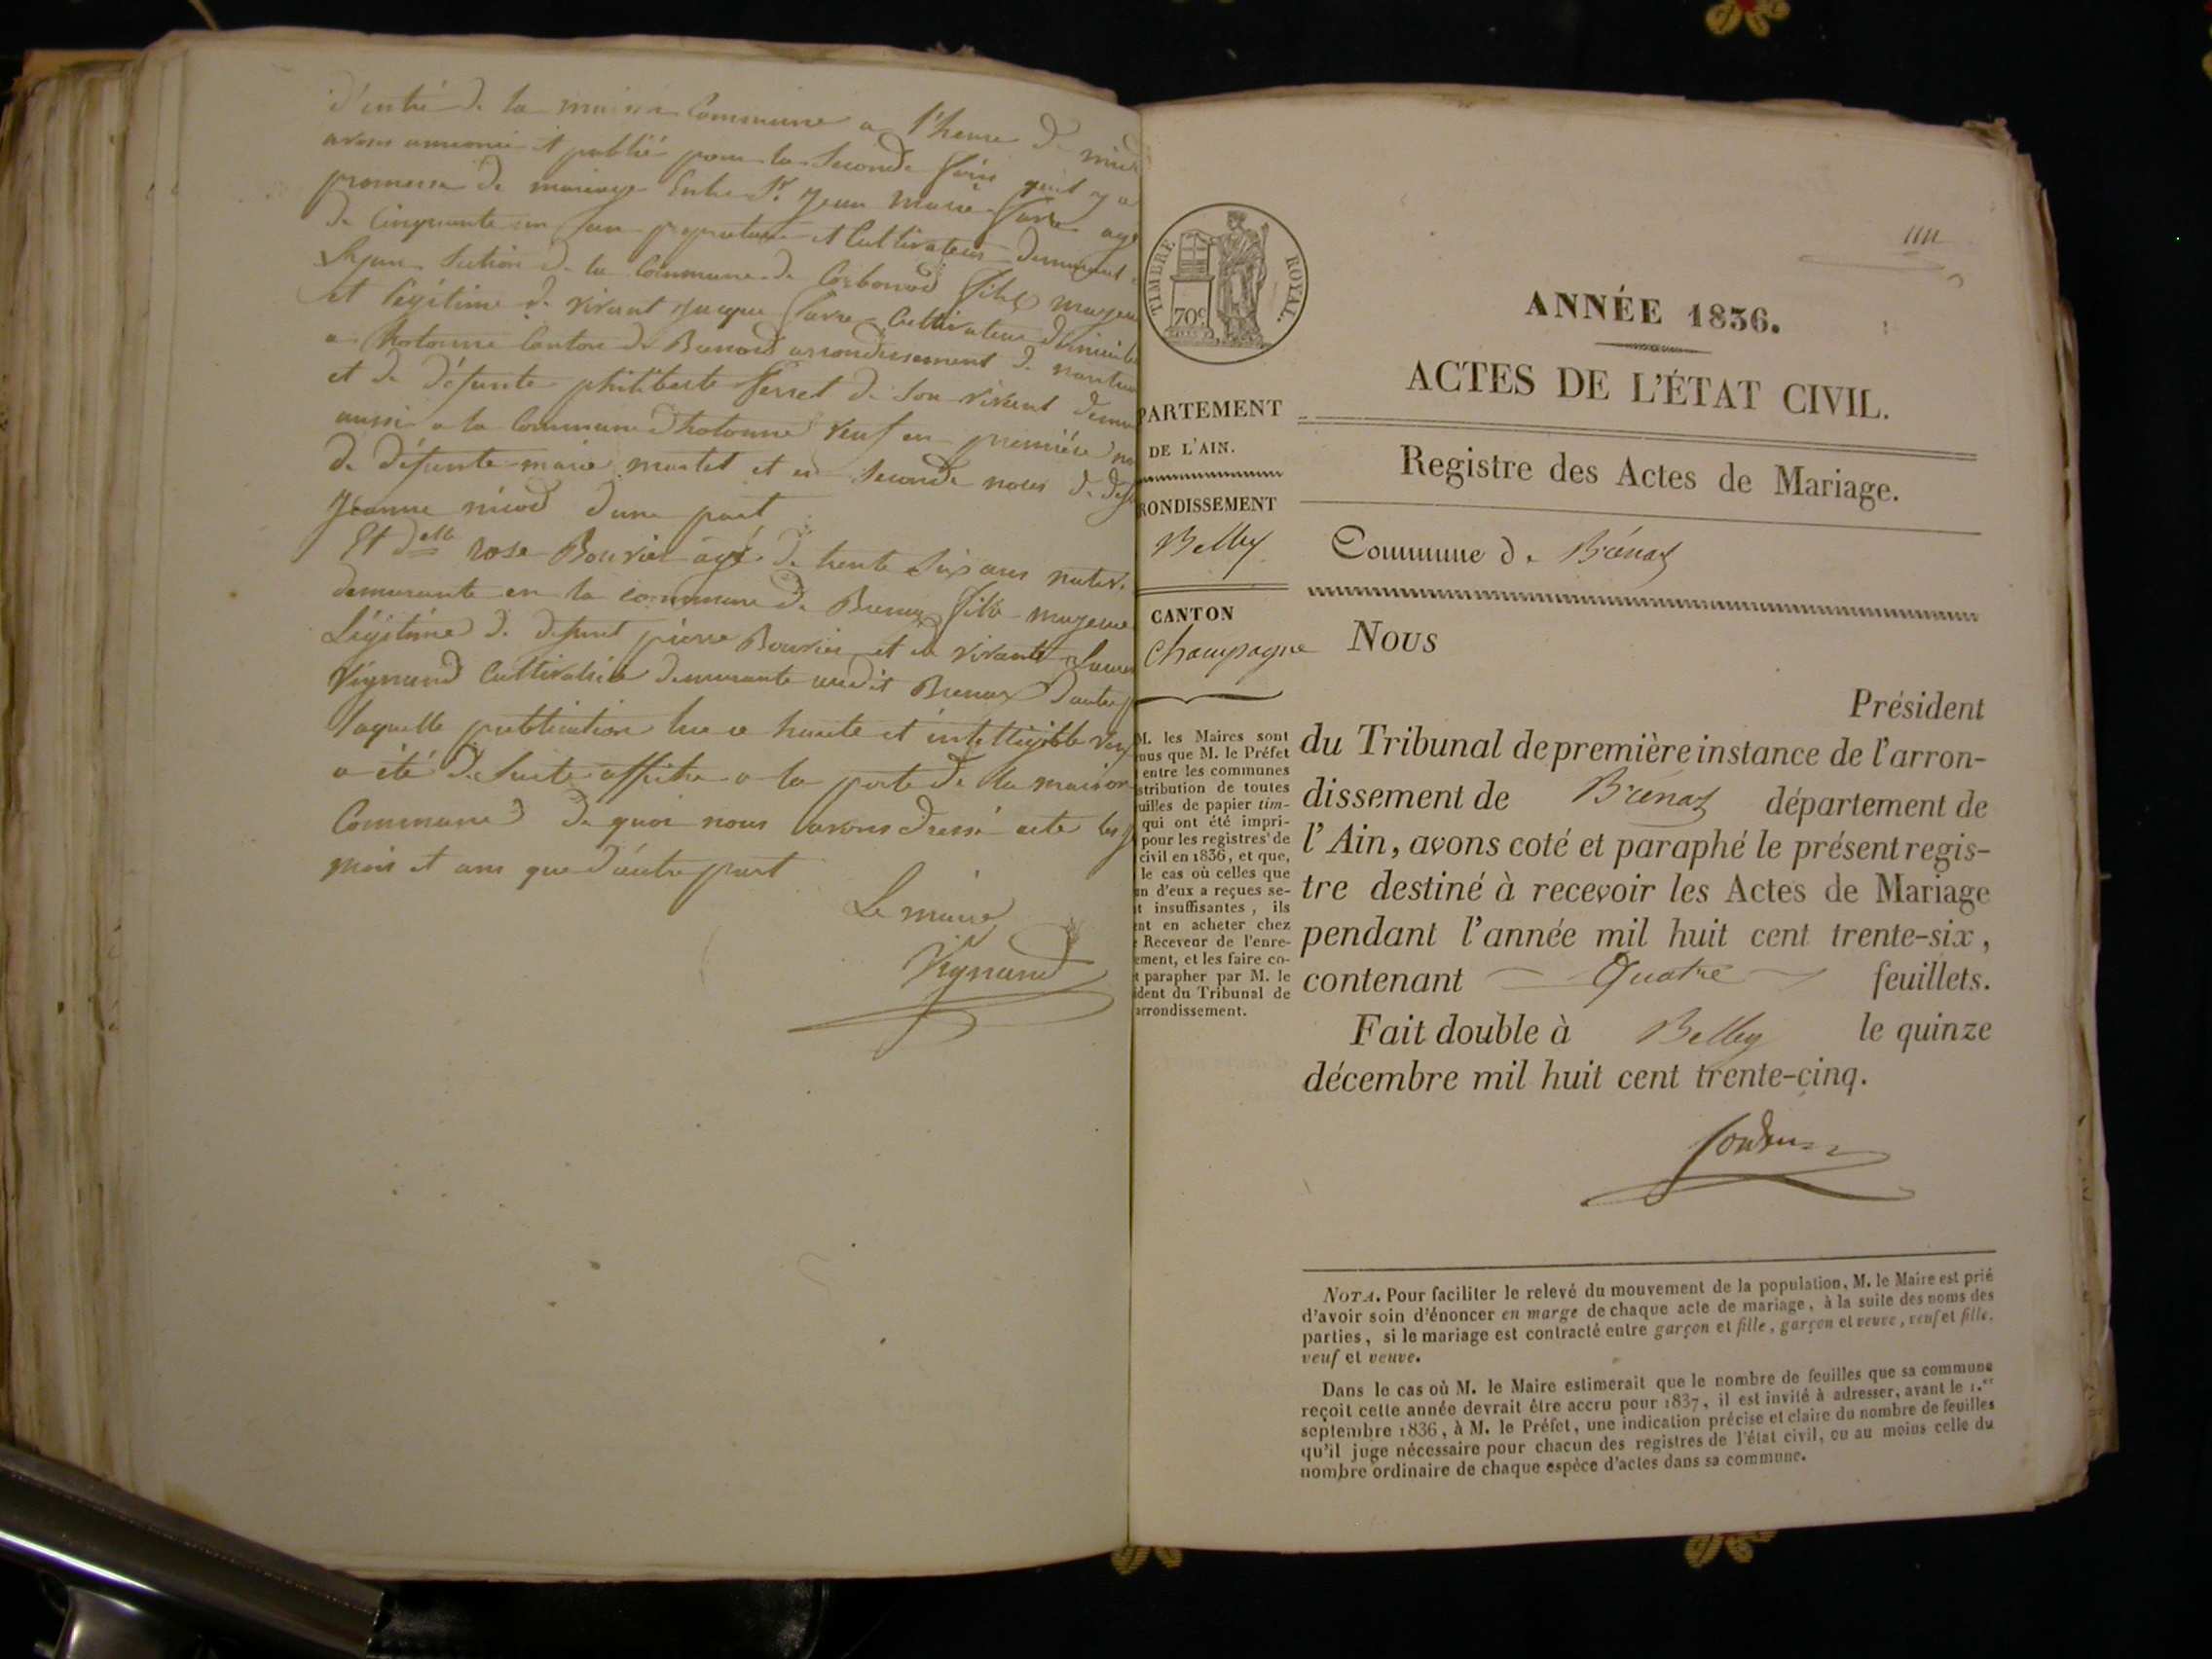 d'entré de la maison Commune a l'heure de midi
avons annoncé et publié pour la seconde fois quil y a
promesse de mariage Entre Sr. Jean Marie favre agé
de Cinquante un ans propriétaire et Cultivateur demeurant
section de la Commune de Corbonod fils majeur
et légitime de vivant Jacque favre Cultivateur
a hotonne Canton de Brenod arrondissement de nantua
et de défunte philiberte ferret de son vivant
aussi a la Commune d'hotonne veuf en première
de défunte marie martel et en seconde noces de
Jeanne nicod dune part
Et delle rose Bouvier agé de trente six ans native
demeurante en la commune de Brenaz fille majeure
Légitime de defunt pierre Bouvier et de vivante
Vignand Cultivatrice demeurante audit Brenaz d'autre
laquelle publication lue a haute et intelligible
a été de suite affiche a la porte de la maison
Commune de quoi nous avons dressé acte les
mois et ans que d'autre part
Le maire
Vignand
TIMBRE ROYAL.
70c
PARTEMENT
DE L'AIN.
RONDISSEMENT
Belley
CANTON
Champagne
M. les Maires sont
nus que M. le Préfet
entre les communes
stribution de toutes
uilles de papier tim-
qui ont été impri-
pour les registres de
civil en 1836, et que,
le cas où celles que
un d'eux a reçues se-
t insuffisantes, ils
ent en acheter chez
Receveur de l'enre-
ement, et les faire co-
t parapher par M. le
ident du Tribunal de
arrondissement.
ANNÉE 1836.
ACTES DE L'ÉTAT CIVIL.
Registre des Actes de Mariage.
Commune de Brénaz
NOUS
Président
du Tribunal de première instance de l'arron-
dissement de Brénaz département de
l'Ain, avons coté et paraphé le présent regis-
tre destiné à recevoir les Actes de Mariage
pendant l'année mil huit cent trente-six,
contenant Quatre feuillets.
Fait double à Belley le quinze
décembre mil huit cent trente-cinq.
NOTA. Pour faciliter le relevé du mouvement de la population, M. le Maire est prié
d'avoir soin d'énoncer en marge de chaque acte de mariage, à la suite des noms des
parties, si le mariage est contracté entre garçon et fille, garçon et veuve, veuf et fille,
veuf et veuve.
Dans le cas où M. le Maire estimerait que le nombre de feuilles que sa commune
reçoit cette année devrait être accru pour 1837, il est invité à adresser, avant le 1.er
septembre 1836, à M. le Préfet, une indication précise et claire du nombre de feuilles
qu'il juge nécessaire pour chacun des registres de l'état civil, ou au moins celle du
nombre ordinaire de chaque espèce d'actes dans sa commune.